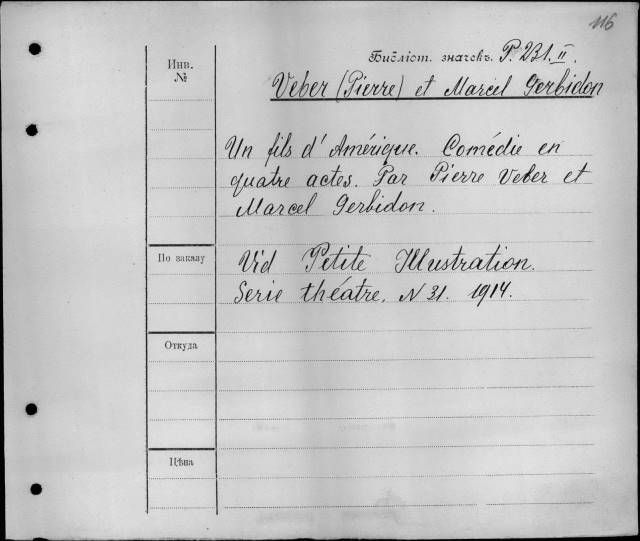 116
Библіот. значекъ. P. 231. II.
Veber (Pierre) et Marcel Gerbidon
Инв.
№
Un fils d' Amérique. Comédie en
quatre actes. Par Pierre Veber et
Marcel Gerbidon.
По заказу
Vid Petite Illustration.
Serie théatre. N 31. 1914.
Откуда
Цѣна